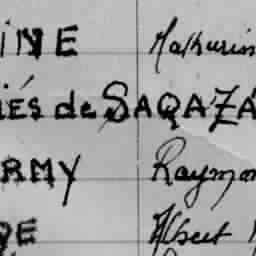 INE Mathurin
iés de SAQAZÁ
RMY Raymon
DE Albert